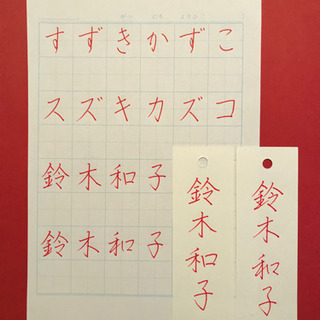 すずきかずこ
スズキカズコ
鈴木和子
鈴木和子
鈴木和子
鈴木和子